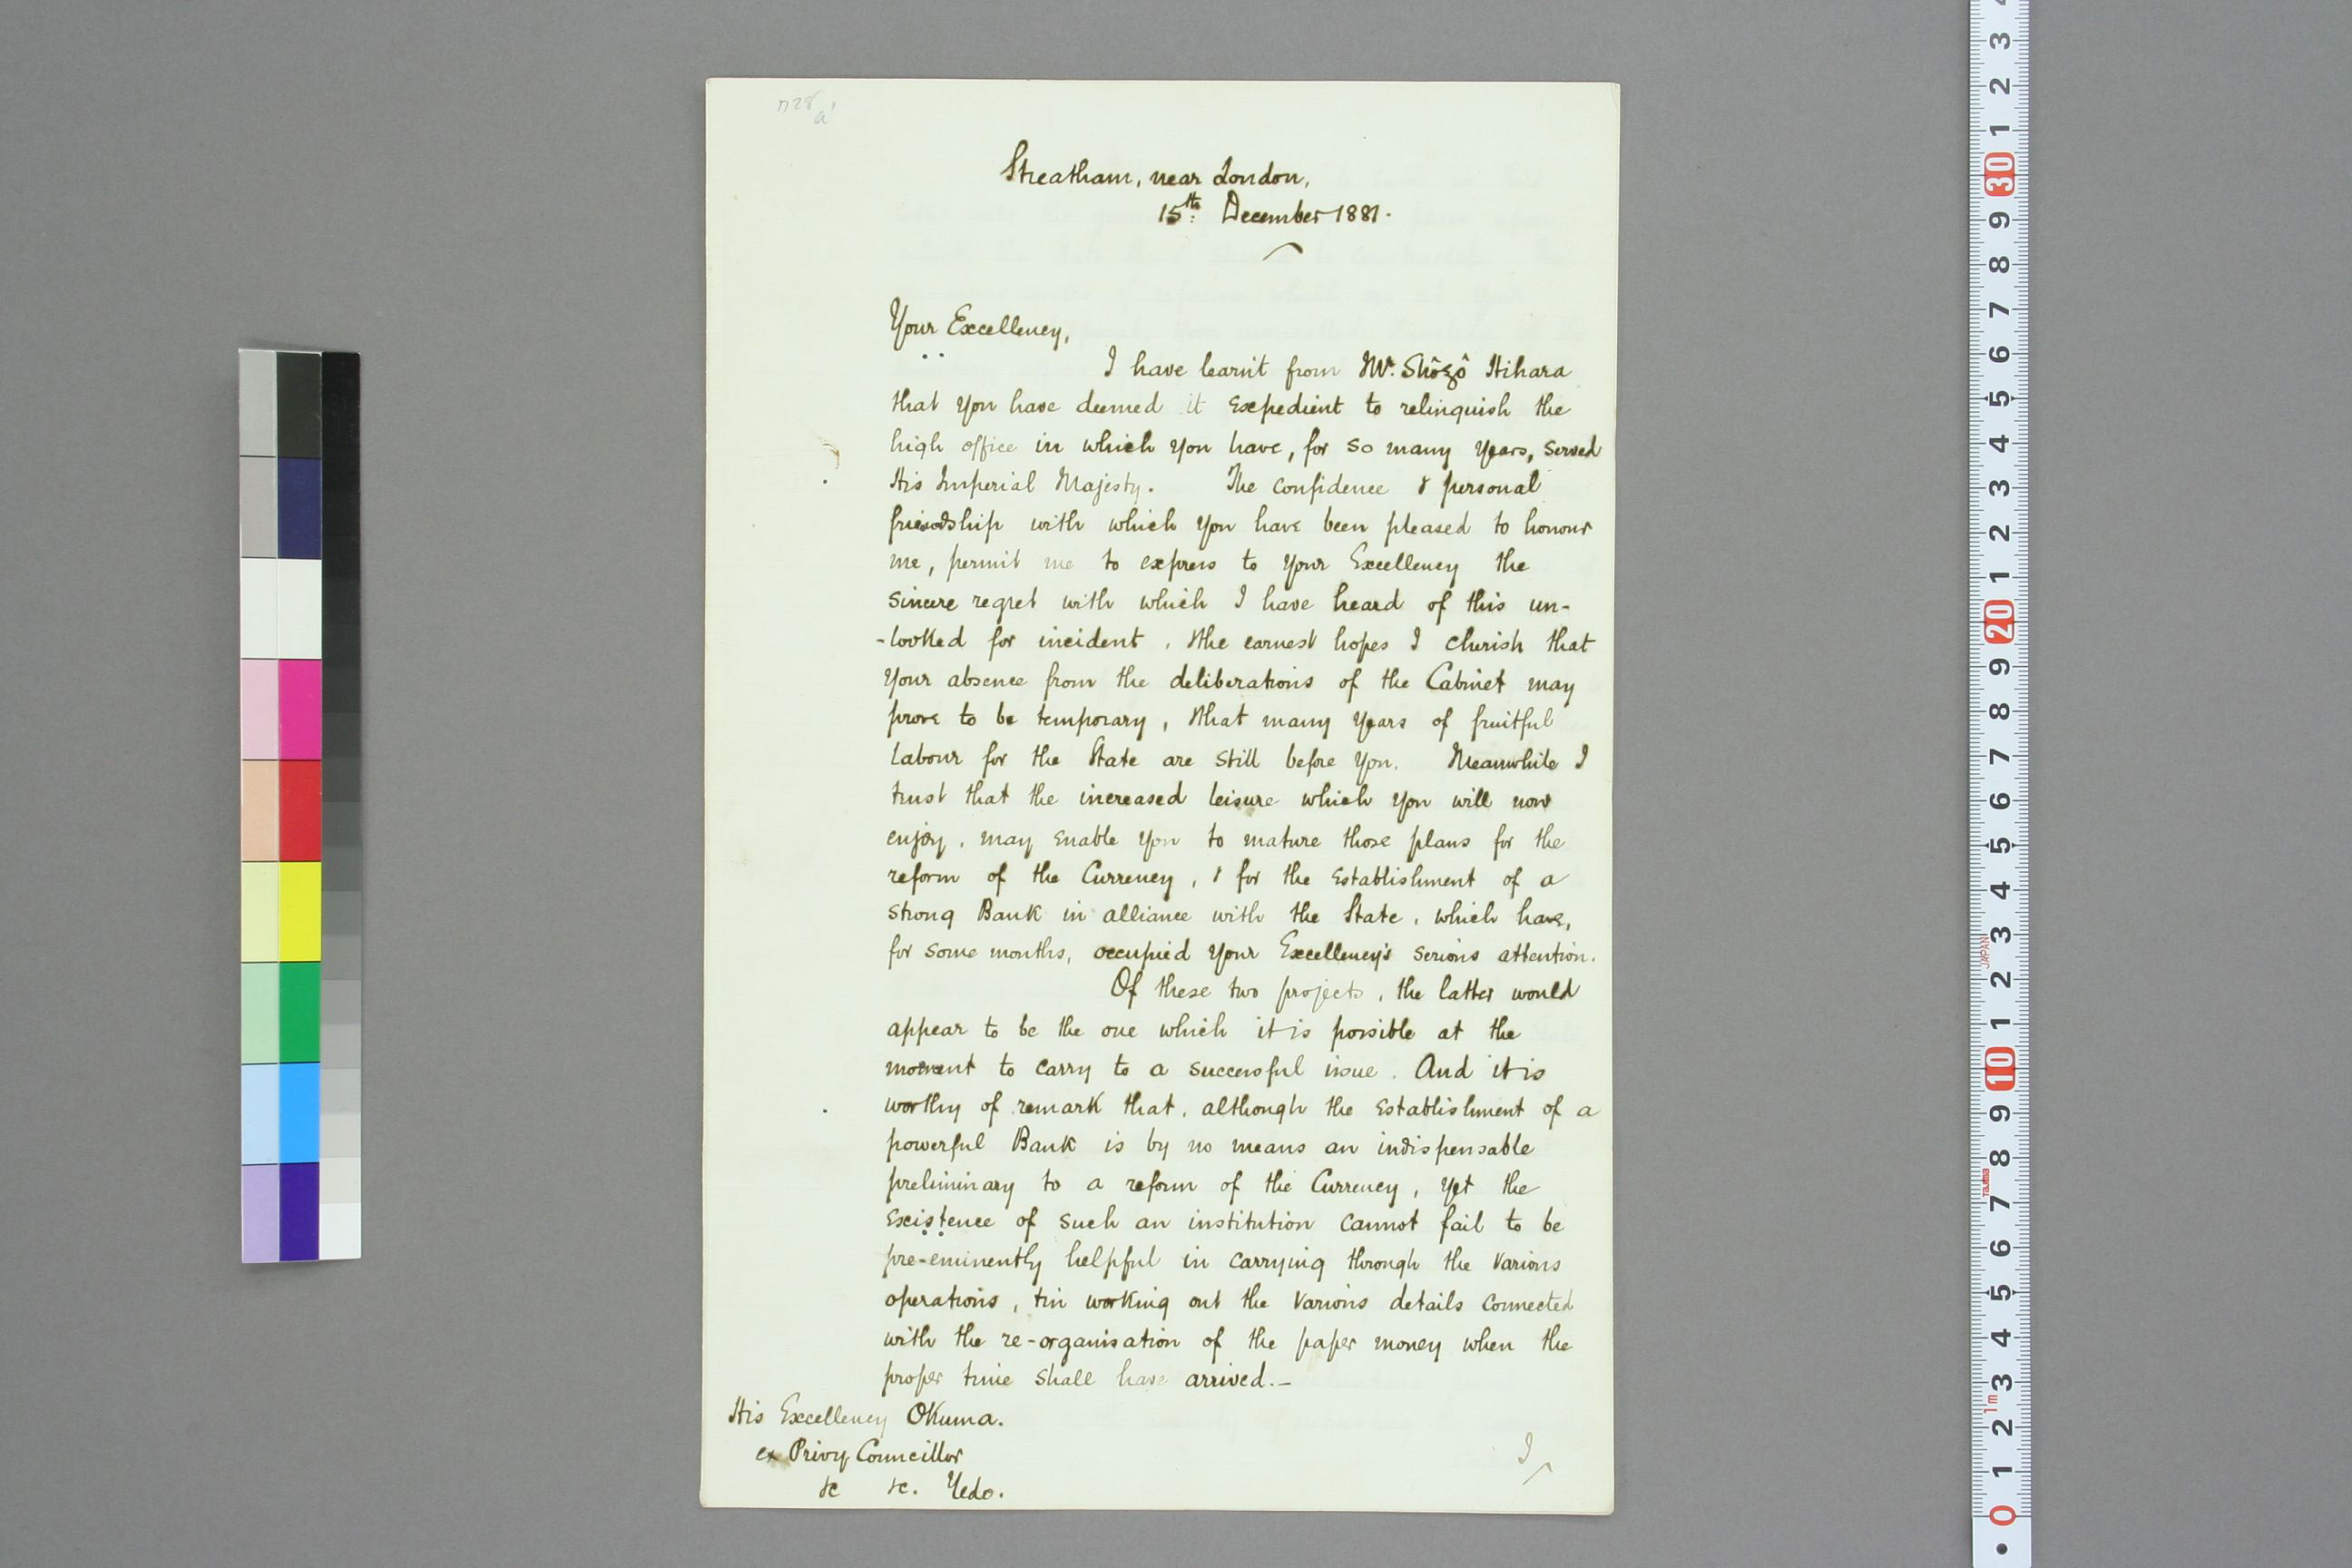 Streatham, near London,
15th December 1881.
Your Excellency,
I have learnt from Mr. Shôzô Hihara
that you have deemed it expedient to relinquish the
high office in which you have, for so many years, served
His Imperial Majesty. The confidence & personal
friendship with which you have been pleased to honour
me, permit me to express to Your Excellency the
sincere regret with which I have heard of this un-
-looked for incident, & the earnest hopes I cherish that
your absence from the deliberations of the Cabinet may
prove to be temporary, & that many years of fruitful
labour for the State are still before you. Meanwhile I
trust that the increased leisure which you will now
enjoy, may enable you to mature those plans for the
reform of the Currency, & for the establishment of a
strong Bank in alliance with the State, which have,
for some months, occupied Your Excellency's serious attention.
Of these two projects, the latter would
appear to be the one which it is possible at the
moment to carry to a successful issue. And it is
worthy of remark that, although the establishment of a
powerful Bank is by no means an indispensable
preliminary to a reform of the Currency, yet the
existence of such an institution cannot fail to be
pre-eminently helpful in carrying through the various
operations, & in working out the various details connected
with the re-organisation of the paper money when the
proper time shall have arrived.—
His Excellency Okuma.
ex Privy Councillor
&c &c. Yedo.
I
3
2
1
30
9
8
7
6
5
4
3
2
1
20
9
8
7
6
5
4
3
JAPAN
2
1
10
9
8
Tajima
7
6
5
4
3
1m
2
1
0